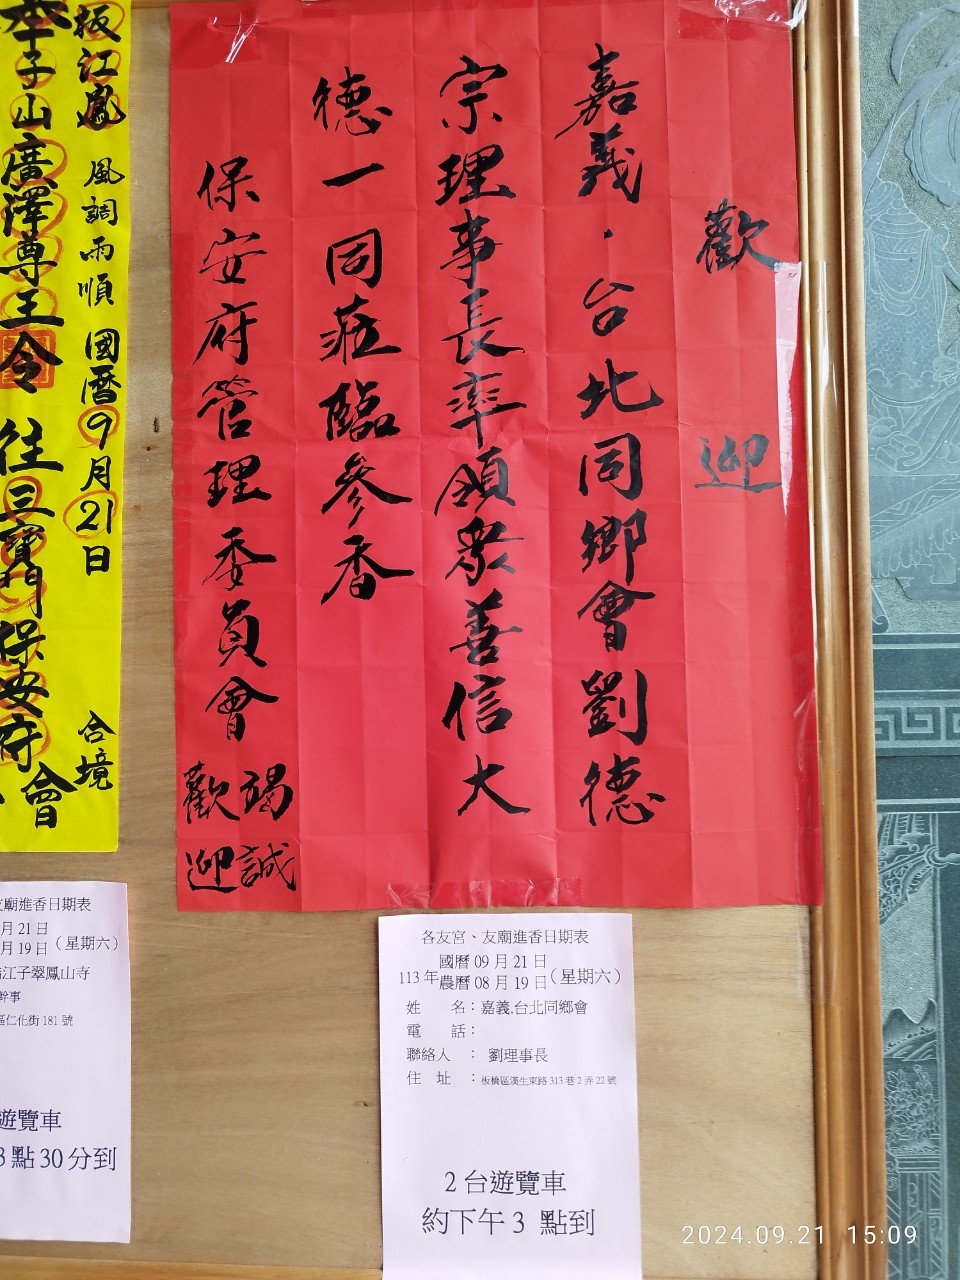 歡迎
嘉義．台北同鄉會劉德
宗理事長率領眾善信大
德一同莅臨參香
保安府管理委員會
竭誠
歡迎
板江鳳
風調雨順
國曆9月21日
合境
本千子山廣澤尊王令
往三寶門保安府
會
各友宮、友廟進香日期表
113年
國曆09月21日
農曆08月19日
(星期六)
姓 名：嘉義.台北同鄉會
電 話：
聯絡人 ： 劉理事長
住 址 ：板橋區漢生東路313巷2弄22號
2台遊覽車
約下午3 點到
友廟進香日期表
月21日
月19日
(星期六)
江子翠鳳山寺
幹事
區仁化街181號
遊覽車
3點30分到
2024.09.21 15:09